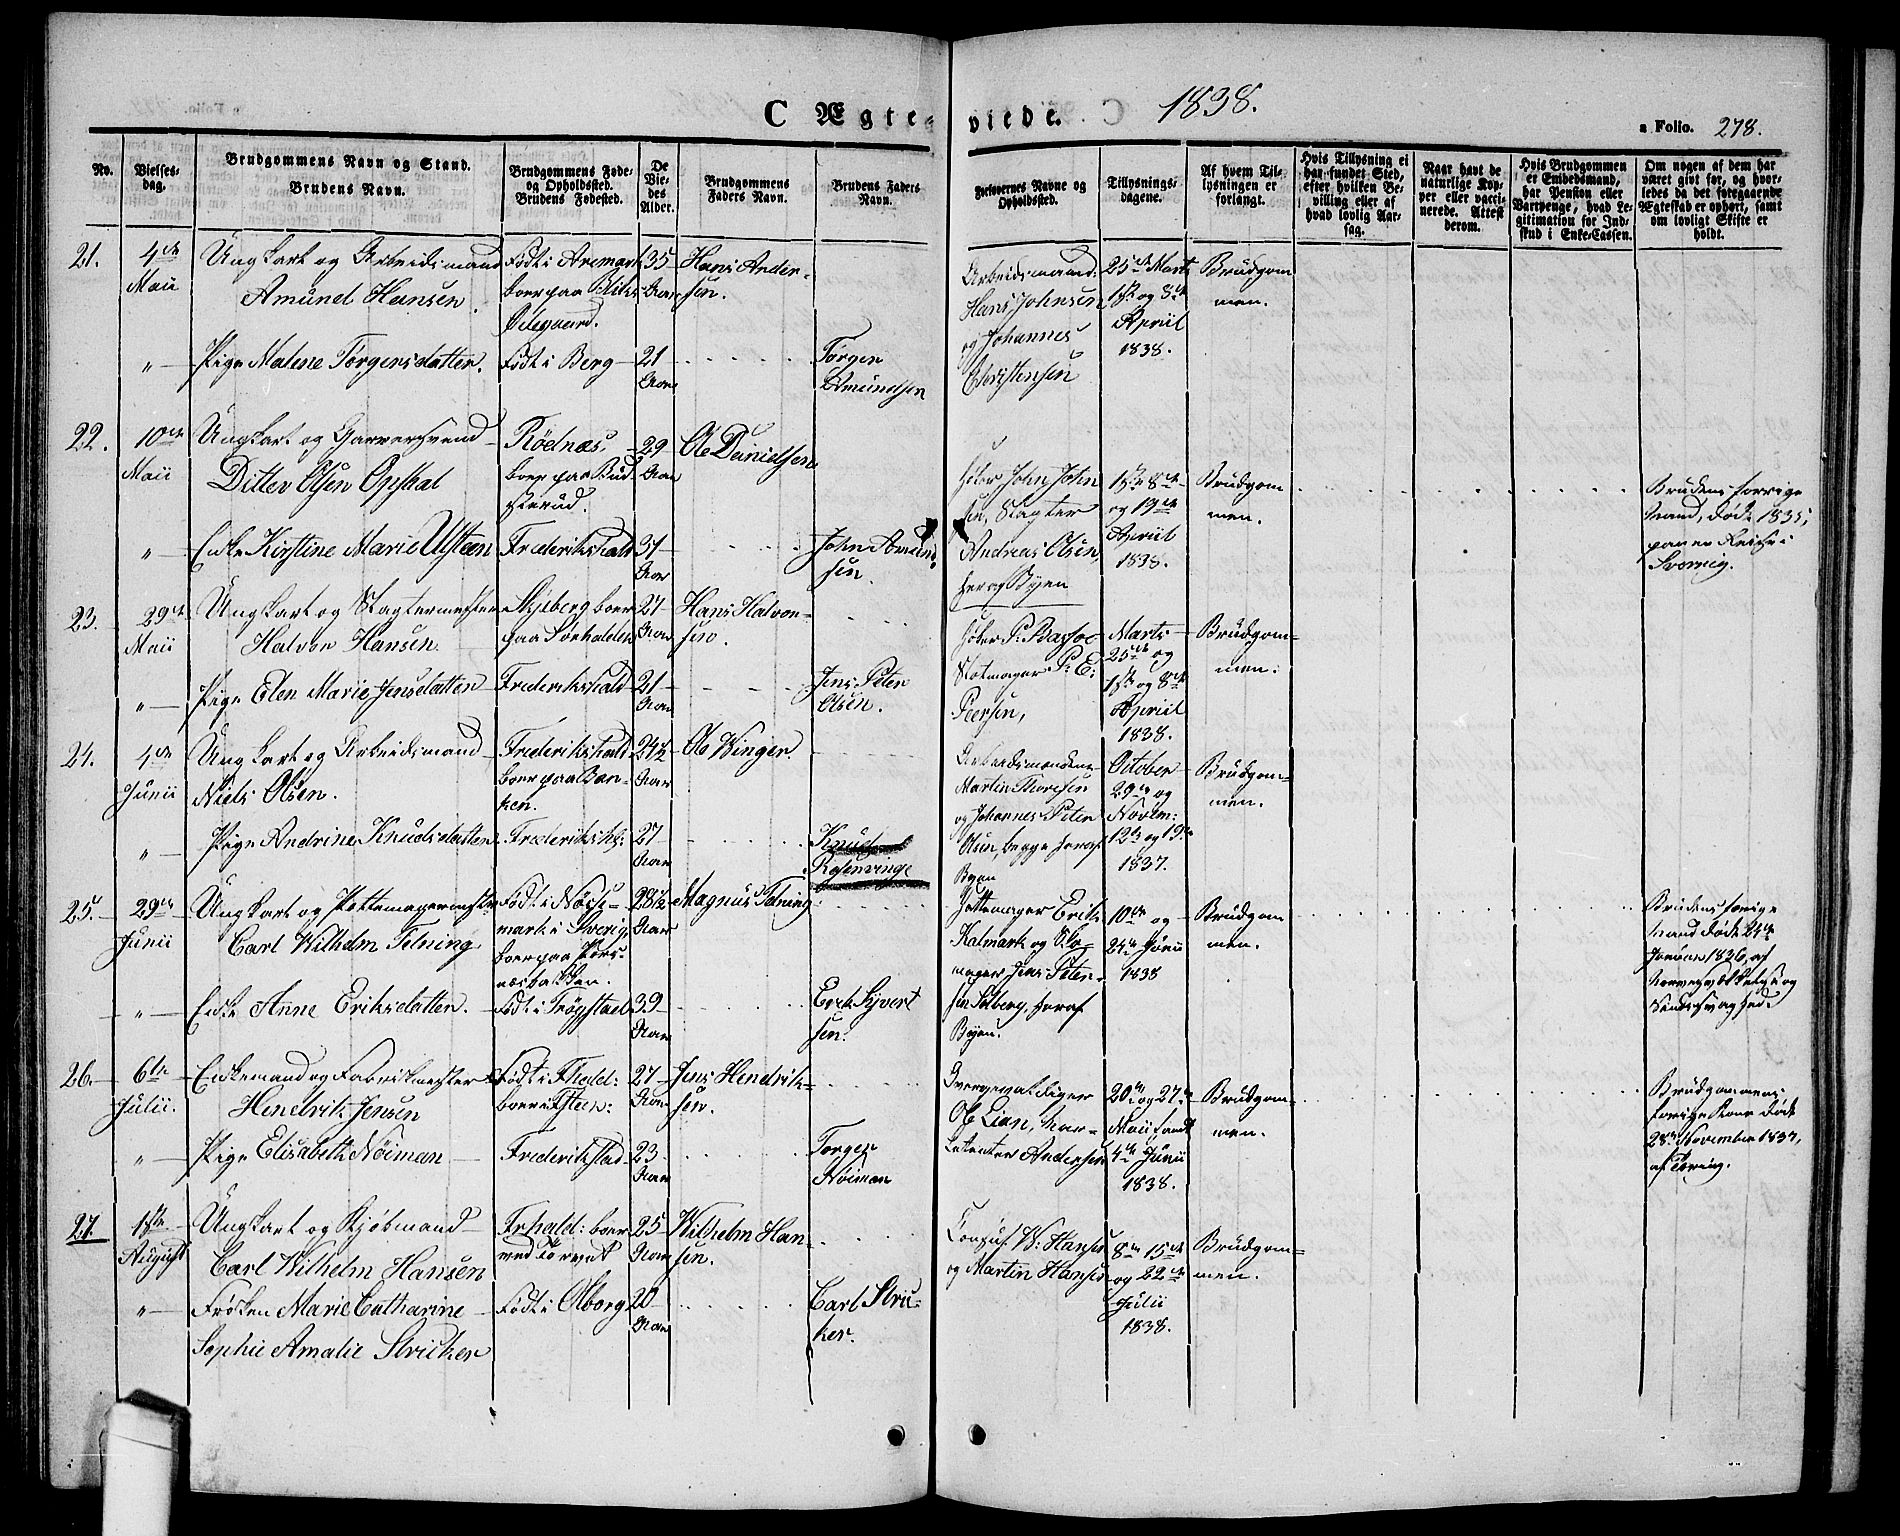 C Ægteviede. 1838.
a Folio. 278.
No.
Vielses-
dag.
Brudgommens Navn og Stand.
Brudens Navn.
Brudgommens Føde-
og Opholdssted.
Brudens Fødested.
De
Vie-
des
Alder.
Brudgommens
Faders Navn.
Brudens Faders
Navn.
Forlovernes Navne og
Opholdssted.
Tillysnings-
dagene.
Af hvem Til-
lysningen er
forlangt.
Hvis Tillysning ei
har fundet Sted,
efter hvilken Be-
villing eller af
hvad lovlig Aar-
sag.
Naar havt de
naturlige Kop-
per eller vacci-
nerede. Attest
derom.
Hvis Brudgommen
er Embedsmand,
har Pension eller
Vartpenge, hvad Le-
gitimation for Ind-
skud i Enke-Cassen.
Om nogen af dem har
været givt før, og hvor-
ledes da det foregaaende
Ægteskab er ophørt, samt
om lovligt Skifte er
holdt.
21. 4de Maii
Ungkarl og Arbeidsmand
Amund Hansen.
Født i Aremark
boer paa Bliks
Ødegaard.
35 Aar
Hans Ander-
sen.
Arbeidsmand:
Hans Johnsen
og Johannes
Christensen
25de Marts
1ste og 8de
Apriil
1838.
Brudgom
men.
" Pige Malene Törgersdatter.
Født i Berg
21 Aar
Törger
Amundsen
22. 10de Maii
Ungkarl og Garversvend
Ditlev Olsen Opsal
Rödnæs,
boer paa Bud
sterud.
29 Aar
Ole Danielsen
John John
sen, Slagter
Andreas Olsen,
her af Byen
1ste 8de
og 19de
Apriil
1838.
Brudgom
men.
Brudens forrige
Mand, døde 1835,
paa en Reise i
Sverrig.
" Enke Kirstine Marie Ulsteen
Frederikshald
37 Aar
John Amund-
sen.
23. 29de Maii
Ungkarl og Slagtermester
Halvor Hansen
Skjeberg boer
paa Sørhalden
27 Aar
Hans Halvor-
sen.
P: Basjoe
P: E:
Peersen,
Marts
25de og
1ste og 8de
Apriil
1838.
Brudgom-
men.
" Pige Elen Marie Jensdatter
Frederikshald
21 Aar
Jens Peter
Olsen.
24. 4de Junii
Ungkarl og Arbeidsmand
Niels Olsen.
Frederikshald
boer paa Ban-
ken.
24½ Aar
Ole Winger.
Arbeidsmændene
Martin Thoresen
og Johannes Peter
Olsen, begge heraf
Byen
October
29de og
Novem:
12te og 19de
1837.
Brudgom-
men.
" Pige Andrine Knudsdatter
Frederiksh:
27 Aar
Knud
Rosenvinge
25. 29de Junii
Ungkarl og Pottemagermester
Carl Wilhelm Telning
Født i Nösse-
mark i Sverig,
boer paa Pors-
næsbakken.
28½ Aar
Magnus Telning
Pottemager Erik
Kalmark og Blo-
mager Jens Peter-
sen Solberg, heraf
Byen.
10de og
24de Junii
1838
Brudgom
men.
Brudens forrige
Mand døde 24de
Januar 1836, af
og
" Enke Anne Eriksdatter.
Født i Trögstad
39 Aar
Erik Syvert
sen.
26. 6te Julii.
Enkemand og Fabrikmester
Hendrik Jensen
Født i Fhald:
boer i Tisted:
27 Aar
Jens Hendrik-
sen.
Ole Lian,
Andersen
20de og 27de
Maii samt
4de Junii
1838.
Brudgom-
men.
Brudgommens
forrige Kone døde
28de November 1837,
af Tæring.
" Pige Elisabeth Nöiman
Frederikstad
23. Aar
Torger
Nöiman
27. 1ste August
Ungkarl og Kjöbmand
Carl Wilhelm Hansen
Frhald: boer
ved Torvet
25 Aar
Wilhelm Han-
sen.
Consul W: Hansen
og Martin Hansen
8de 15de
og 22de
Julii
1838.
Brudgom-
men.
" Frøken Marie Catharine
Sophie Amalie Stricker
Født i Olborg
20 Aar
Carl Stric-
ker.